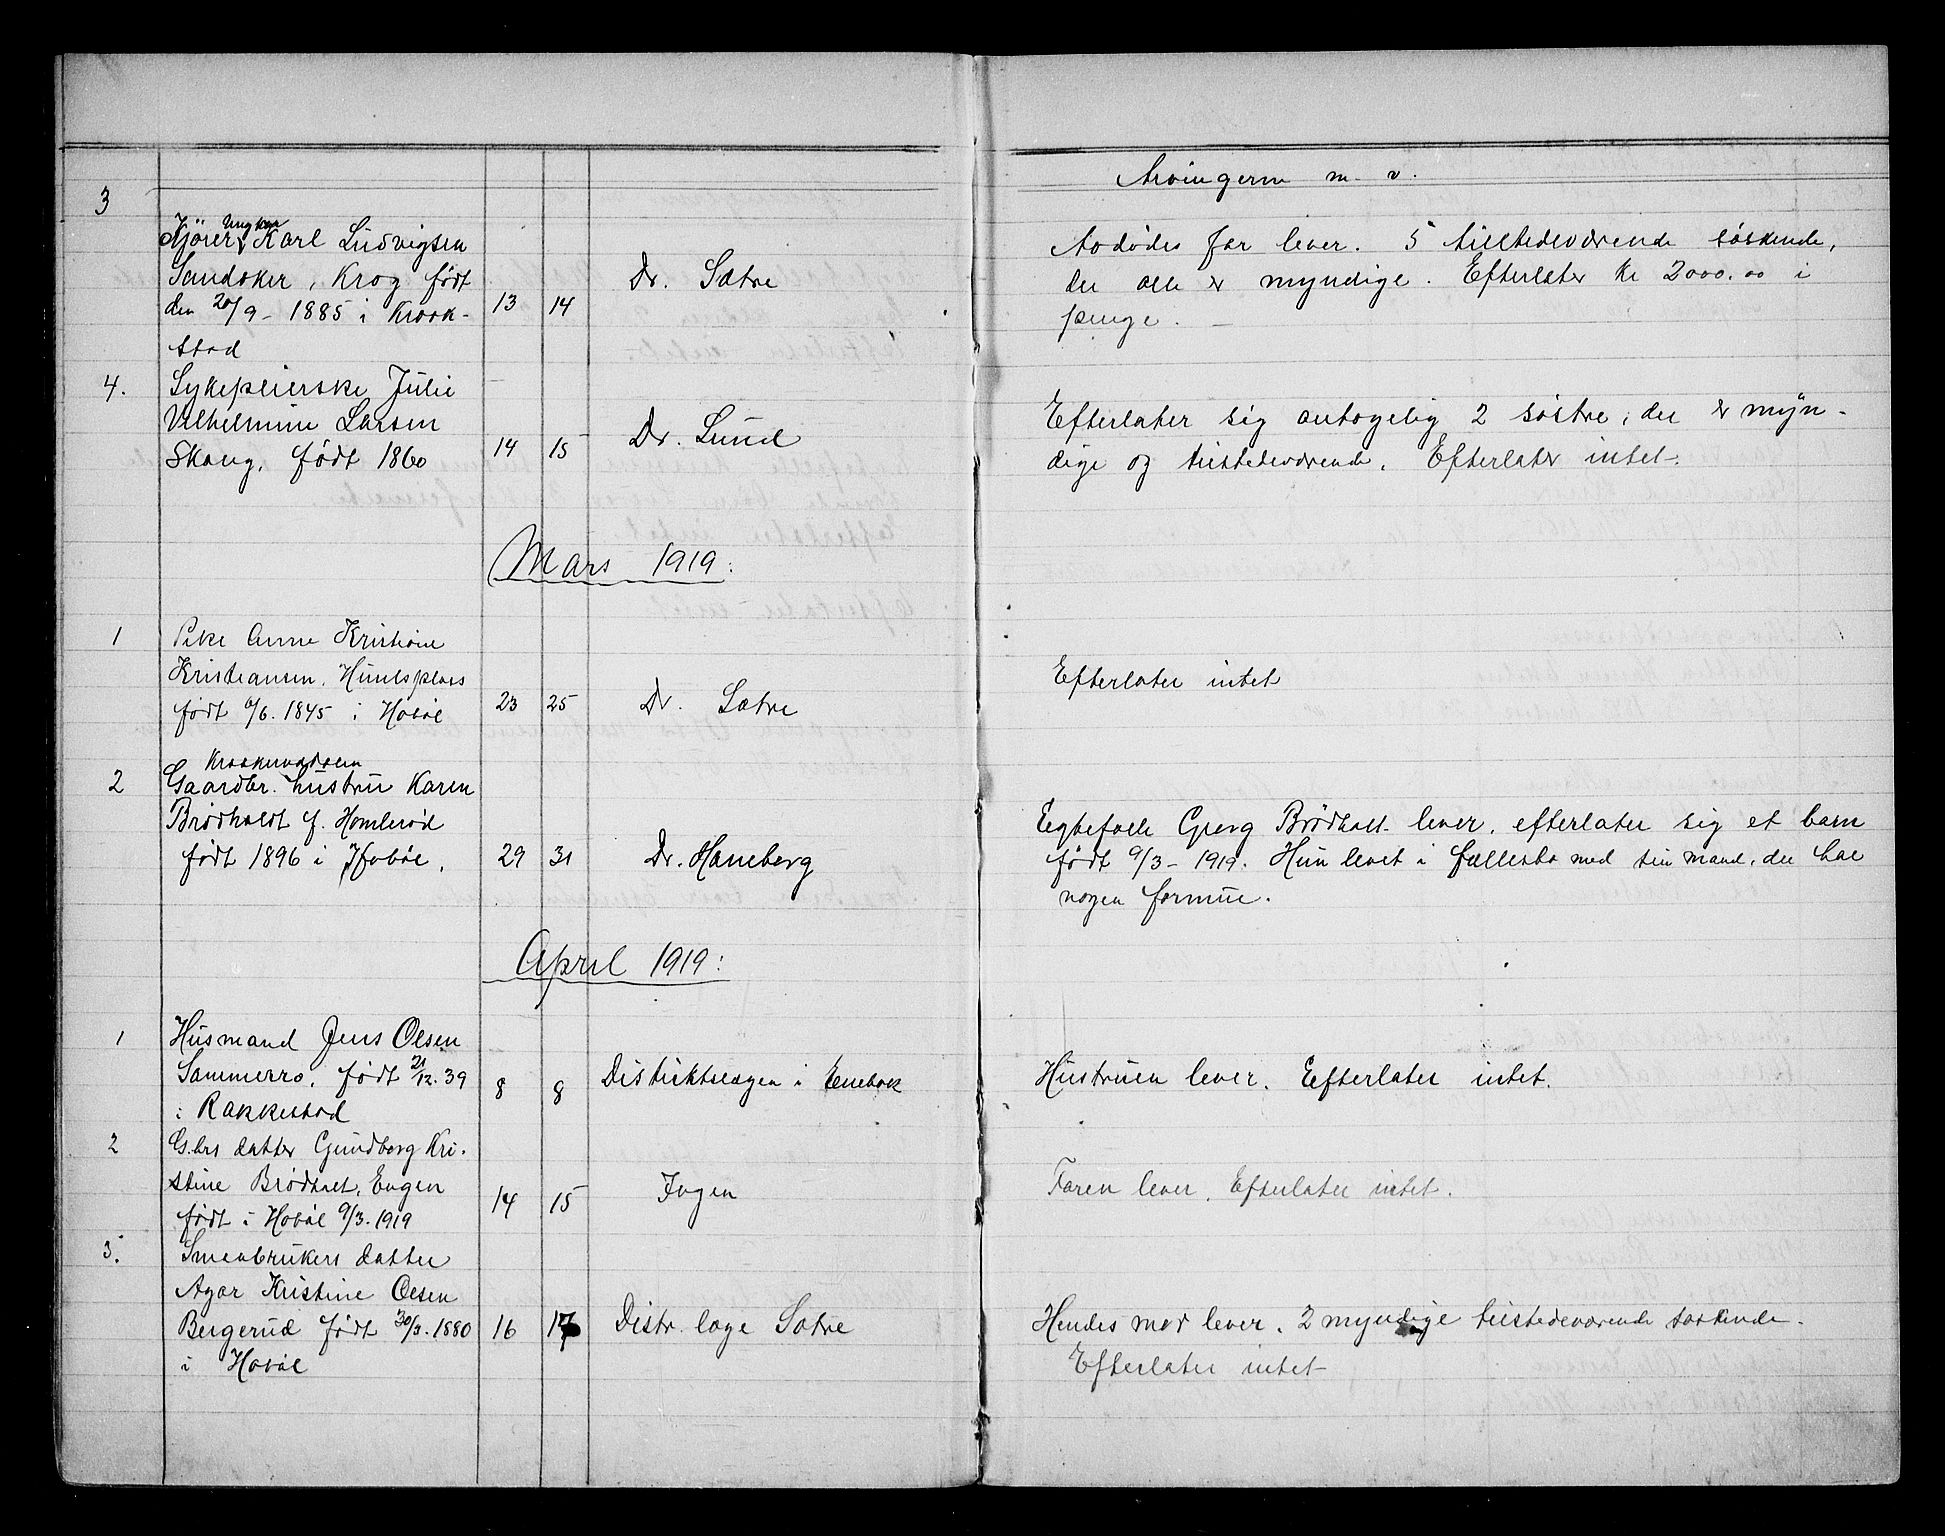 Arvingerne m. v.
3
Kjörer, Ungkar Karl Ludvigsen
Sandaker, Krog født
den 20/9 - 1885 i Kraak-
stad
13 14 Dr. Sætre
Avdødes far lever. 5 tilstedeværende søskende,
der alle er myndige. Efterlater kr 2000.00 i
penge.
4. Sykepleierske Julie
Vilhelmine Larsen
Skaug, født 1860
14 15 Dr. Lund
Efterlater sig antagelig 2 søstre, der er myn-
dige og tilstedeværende. Efterlater intet.
Mars 1919:
1 Pike Anne Kristine
Kristiansen,
født 9/6. 1845 i Hobøl
23 25 Dr. Sætre
Efterlater intet
Kraakervadseia
2 Gaardbr. hustru Karen
Brødholdt f. Homlerød
født 1896 i Hobøl.
29 31 Dr. Haneborg
Egtefelle Georg Brødholt lever, efterlater sig et barn
født 9/3 - 1919. Hun levet i fællesbo med sin mand, der har
nogen formue.
April 1919:
1 Husmand Jens Olsen
Sommerro, født 21/12. 39
i Rakkestad
8 8 Distriktslægen i Enebak
Hustruen lever. Efterlater intet.
2 G.brs datter Gundborg Kri-
stine Brødholt, Engen
født i Hobøl 9/3. 1919
14 15 Ingen
Faren lever. Efterlater intet.
3. Smaabrukers datter
Agar Kristine Olsen
Bergerud født 30/3. 1880
i Hobøl
16 17 Distr. læge Sætre
Hendes mor lever. 2 myndige tilstedeværende søskende.
Efterlater intet